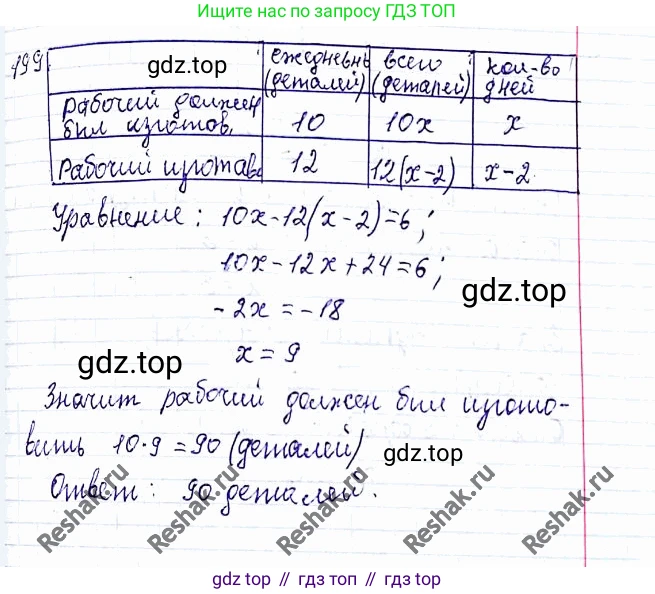 Ищите нас по запросу ГДЗ ТОП
199
gdz.top
ежедневн (деталей)
всего (деталей)
кол-во дней
рабочий должен был изготов.
10
10x
x
Рабочий изготав
12
12(x-2)
x-2
Уравнение: 10x-12(x-2)=6;
10x-12x+24=6;
gdz.top
-2x=-18
x=9
gdz.top
Значит рабочий должен был изгото-
вить 10·9=90 (деталей)
gdz.top
Ответ: 90 деталей.
Reshak.ru
Reshak.ru
Reshak.ru
Reshak.ru
Reshak.ru
gdz top // гдз топ // гдз.top